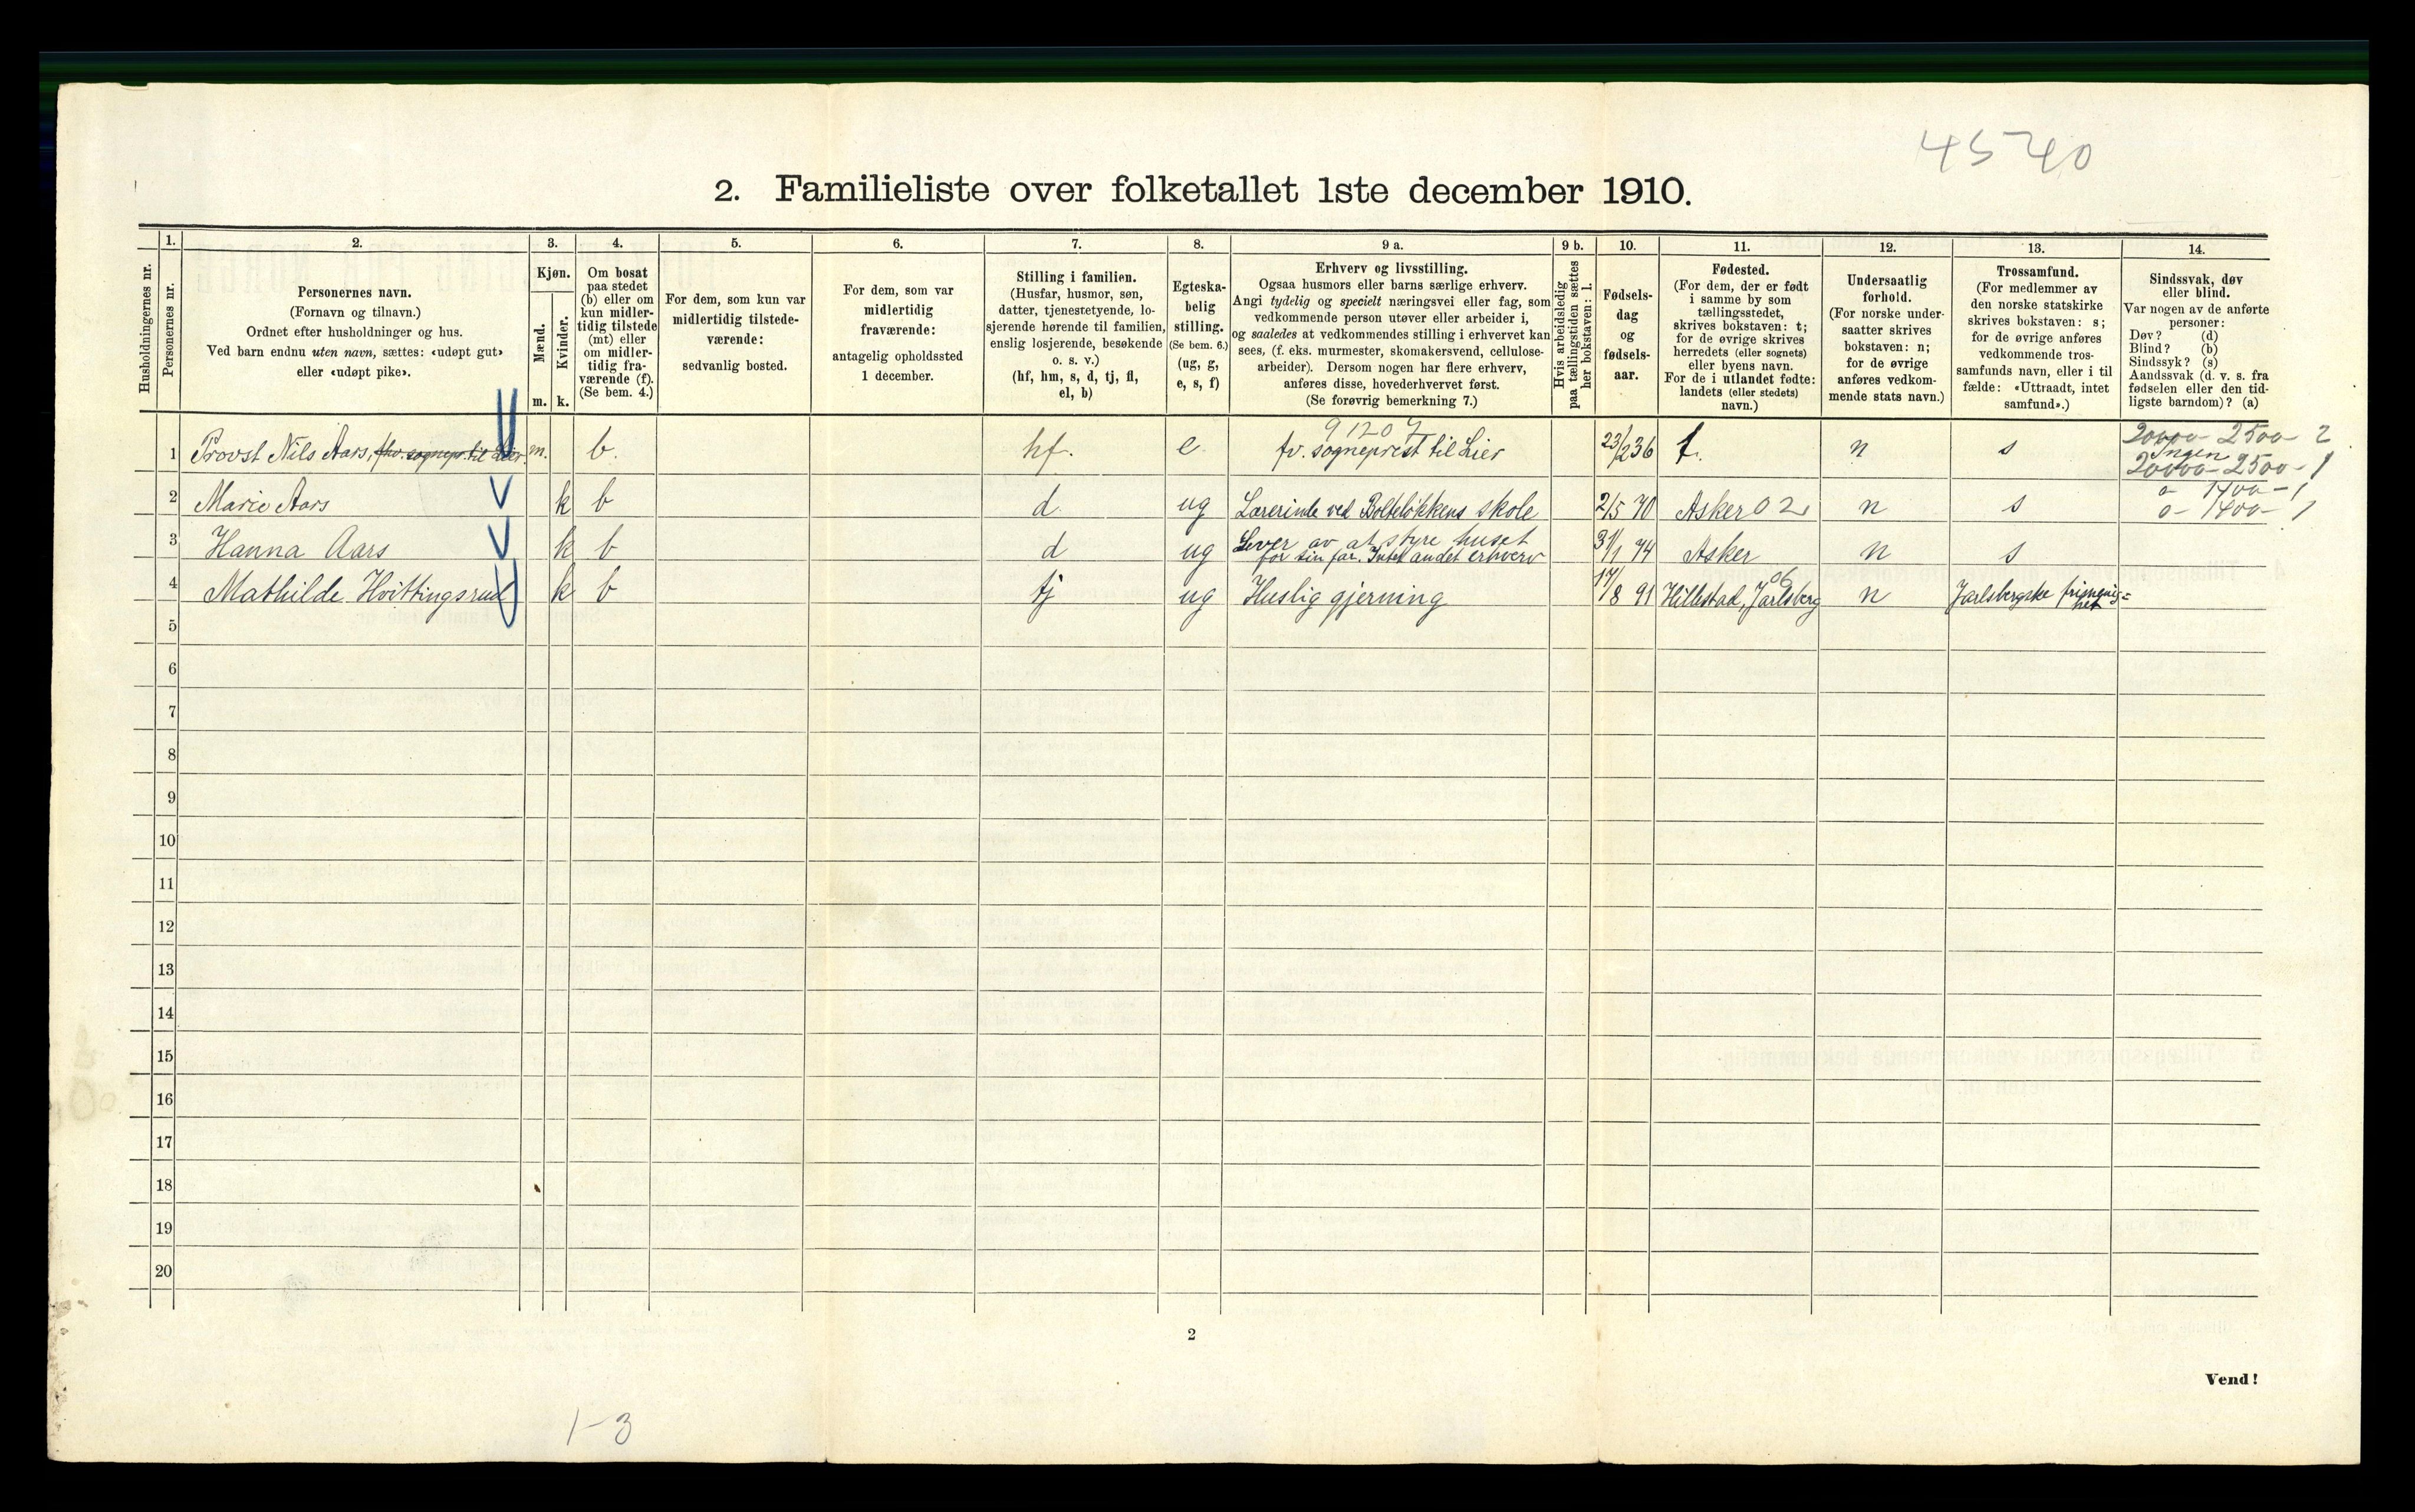 4540
2. Familieliste over folketallet 1ste december 1910.
Husholdningernes nr.
1.
Personernes nr.
2.
Personernes navn.
(Fornavn og tilnavn.)
Ordnet efter husholdninger og hus.
Ved barn endnu uten navn, sættes: «udøpt gut»
eller «udøpt pike».
3.
Kjøn.
Mænd.
Kvinder.
m. k.
4.
Om bosat
paa stedet
(b) eller om
kun midler-
tidig tilstede
(mt) eller
om midler-
tidig fra-
værende (f).
(Se bem. 4.)
5.
For dem, som kun var
midlertidig tilstede-
værende:
sedvanlig bosted.
6.
For dem, som var
midlertidig
fraværende:
antagelig opholdssted
1 december.
7.
Stilling i familien.
(Husfar, husmor, søn,
datter, tjenestetyende, lo-
sjerende hørende til familien,
enslig losjerende, besøkende
o. s. v.)
(hf, hm, s, d, tj, fl,
el, b)
8.
Egteska-
belig
stilling.
(Se bem. 6.)
(ug, g,
e, s, f)
9 a.
Erhverv og livsstilling.
Ogsaa husmors eller barns særlige erhverv.
Angi tydelig og specielt næringsvei eller fag, som
vedkommende person utøver eller arbeider i,
og saaledes at vedkommendes stilling i erhvervet kan
sees, (f. eks. murmester, skomakersvend, cellulose-
arbeider). Dersom nogen har flere erhverv,
anføres disse, hovederhvervet først.
(Se forøvrig bemerkning 7.)
9 b.
Hvis arbeidsledig
paa tællingstiden sættes
her bokstaven: l.
10.
Fødsels-
dag
og
fødsels-
aar.
11.
Fødested.
(For dem, der er født
i samme by som
tællingsstedet,
skrives bokstaven: t;
for de øvrige skrives
herredets (eller sognets)
eller byens navn.
For de i utlandet fødte:
landets (eller stedets)
navn.)
12.
Undersaatlig
forhold.
(For norske under-
saatter skrives
bokstaven: n;
for de øvrige
anføres vedkom-
mende stats navn.)
13.
Trossamfund.
(For medlemmer av
den norske statskirke
skrives bokstaven: s;
for de øvrige anføres
vedkommende tros-
samfunds navn, eller i til
fælde: «Uttraadt, intet
samfund».)
14.
Sindssvak, døv
eller blind.
Var nogen av de anførte
personer:
Døv? (d)
Blind? (b)
Sindssyk? (s)
Aandssvak (d. v. s. fra
fødselen eller den tid-
ligste barndom)? (a)
91207
20000- 2500- 2
1 Provst Nils Aars, fhv. sognepr. til Lier m. b. hf. e. fv. sogneprest til Lier 23/2 36 t. n s Ingen
20000- 2500- 1
2 Marie Aars k b d. ug Lærerinde ved Bolteløkkens skole 2/5 70 Asker 02 n s 0 - 1400 - 1
0 - 1400 - 1
3 Hanna Aars k b d ug Lever av at styre huset
for sin far. Intet andet erhverv 31/1 74 Asker n s
4 Mathilde Hvittingsrud k b tj ug Huslig gjerning 17/8 91 Hillestad, Jarlsberg 06 n Jarlsbergske frimenig=
het
5
6
7
8
9
10
11
12
13
14
15
16
17
18
19
20
2
Vend!
1-3